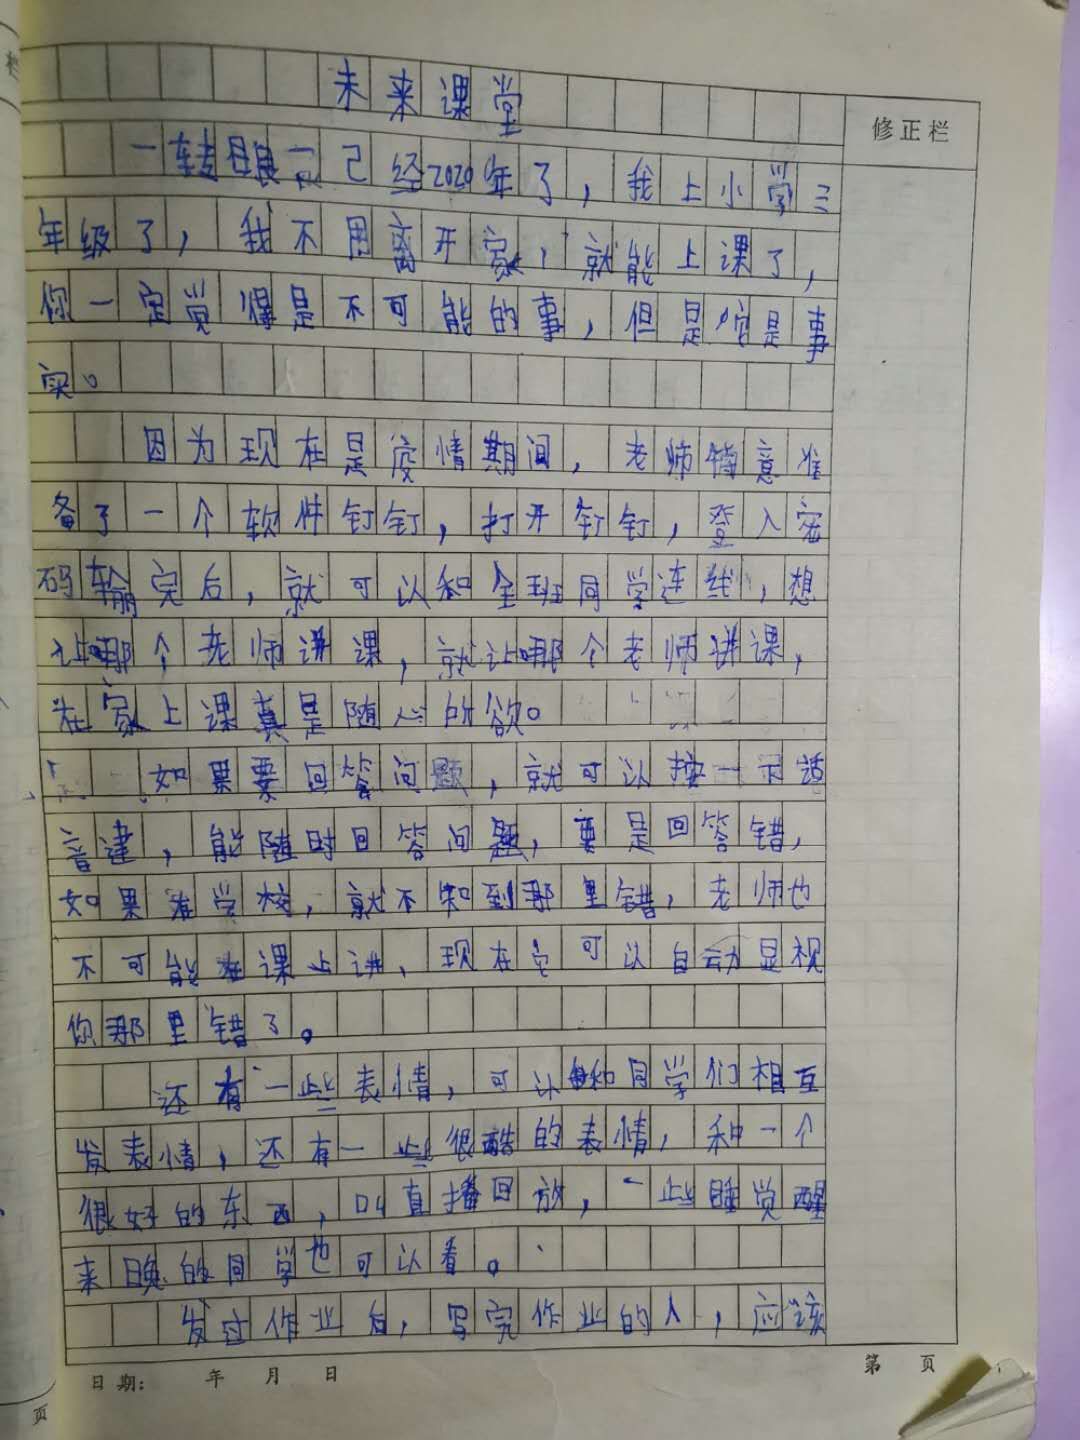 未来课堂
修正栏
一转眼已经2020年了，我上小学三
年级了，我不用离开家，就能上课了，
你一定觉得是不可能的事，但是它是事
实。
因为现在是疫情期间，老师特意准
备了一个软件钉钉，打开钉钉，登入密
码输完后，就可以和全班同学连线，想
让哪个老师讲课，就让哪个老师讲课，
在家上课真是随心所欲。
如果要回答问题，就可以按一下语
音建，能随时回答问题，要是回答错，
如果在学校，就不知到那里错，老师也
不可能在课上讲，现在它可以自动显视
你那里错了。
还有一些表情，可以和同学们相互
发表情，还有一些很酷的表情，和一个
很好的东西，叫直播回放，一些睡觉醒
来晚的同学也可以看。
发过作业后，写完作业的人，应该
日期： 年 月 日
第 页
页